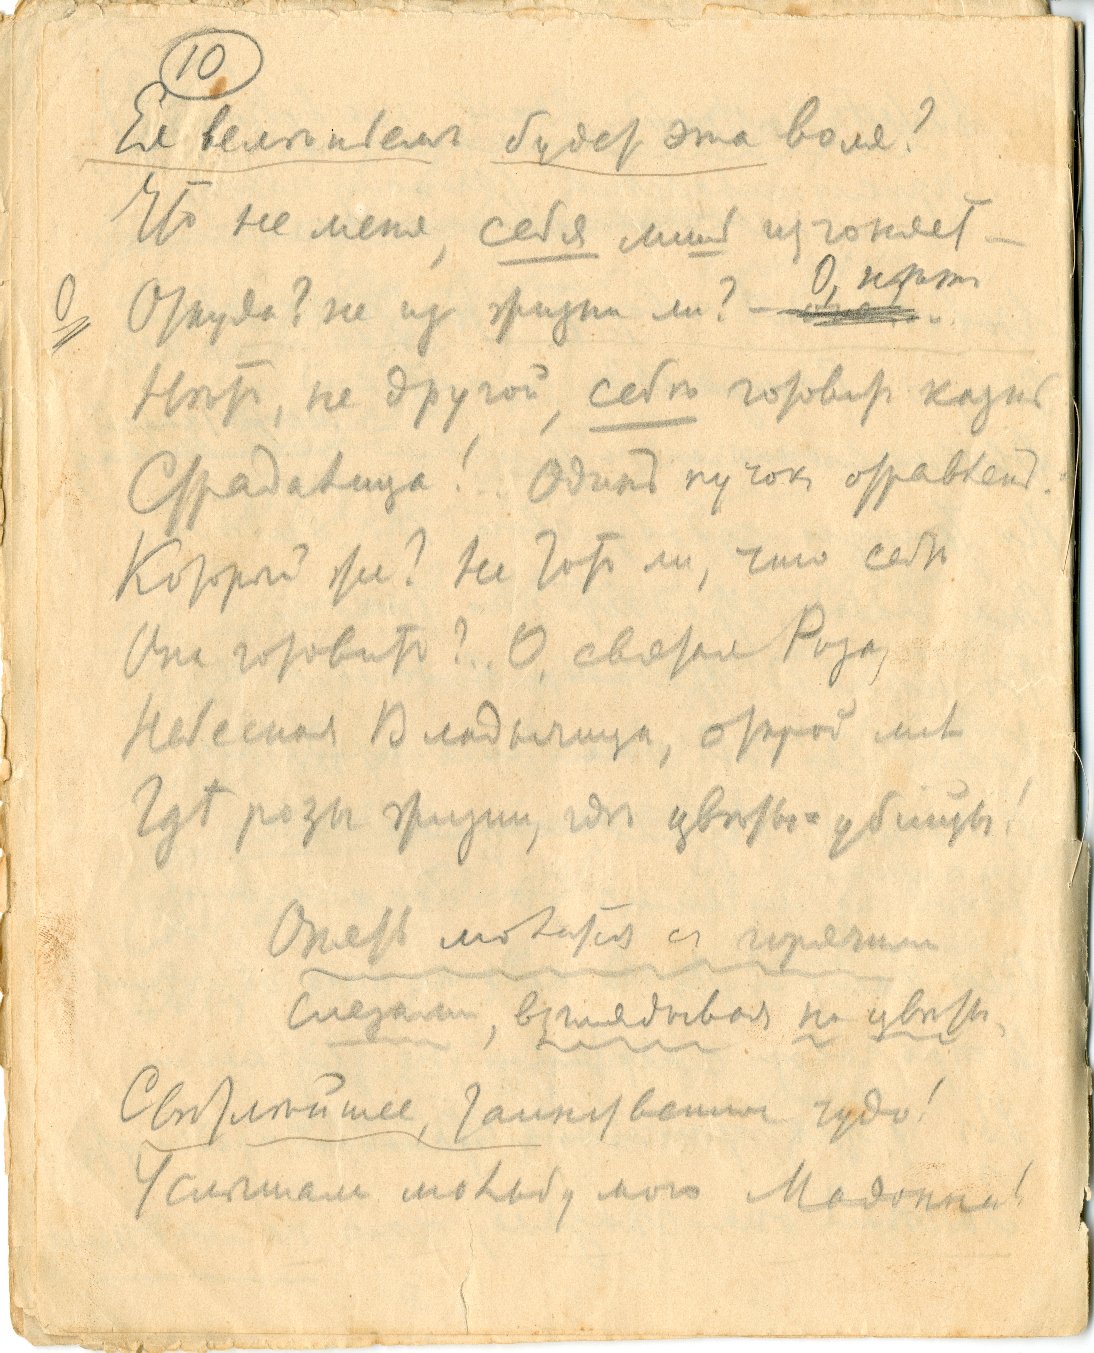 10
Ея велѣніемъ будетъ эта воля?
Что не меня, себя мнитъ изгоняетъ —
Откуда? не из жизни ли? — О, нѣтъ
О
Нѣтъ, не другой, себѣ готовит казнь
Страдалица!.. Один пучок отравлен.
Который же? Не тот ли, что себѣ
Она готовитъ?.. О, святая Роза,
Небесная Владычица, открой мнѣ
Гдѣ розы жизни, гдѣ цвѣты-убійцы!
Опять молится с горячими
слезами, вглядываяся на цвѣты.
Свѣтлѣйшее, таинственное чудо!
Услышала мольбу мою Мадонна!